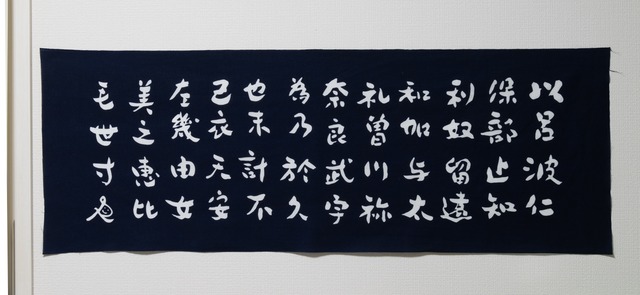 以呂波仁
保部止知
利奴留遠
和加与太
礼曽川祢
奈良武宇
為乃於久
也末計不
己衣天安
左幾由女
美之惠比
毛世寸